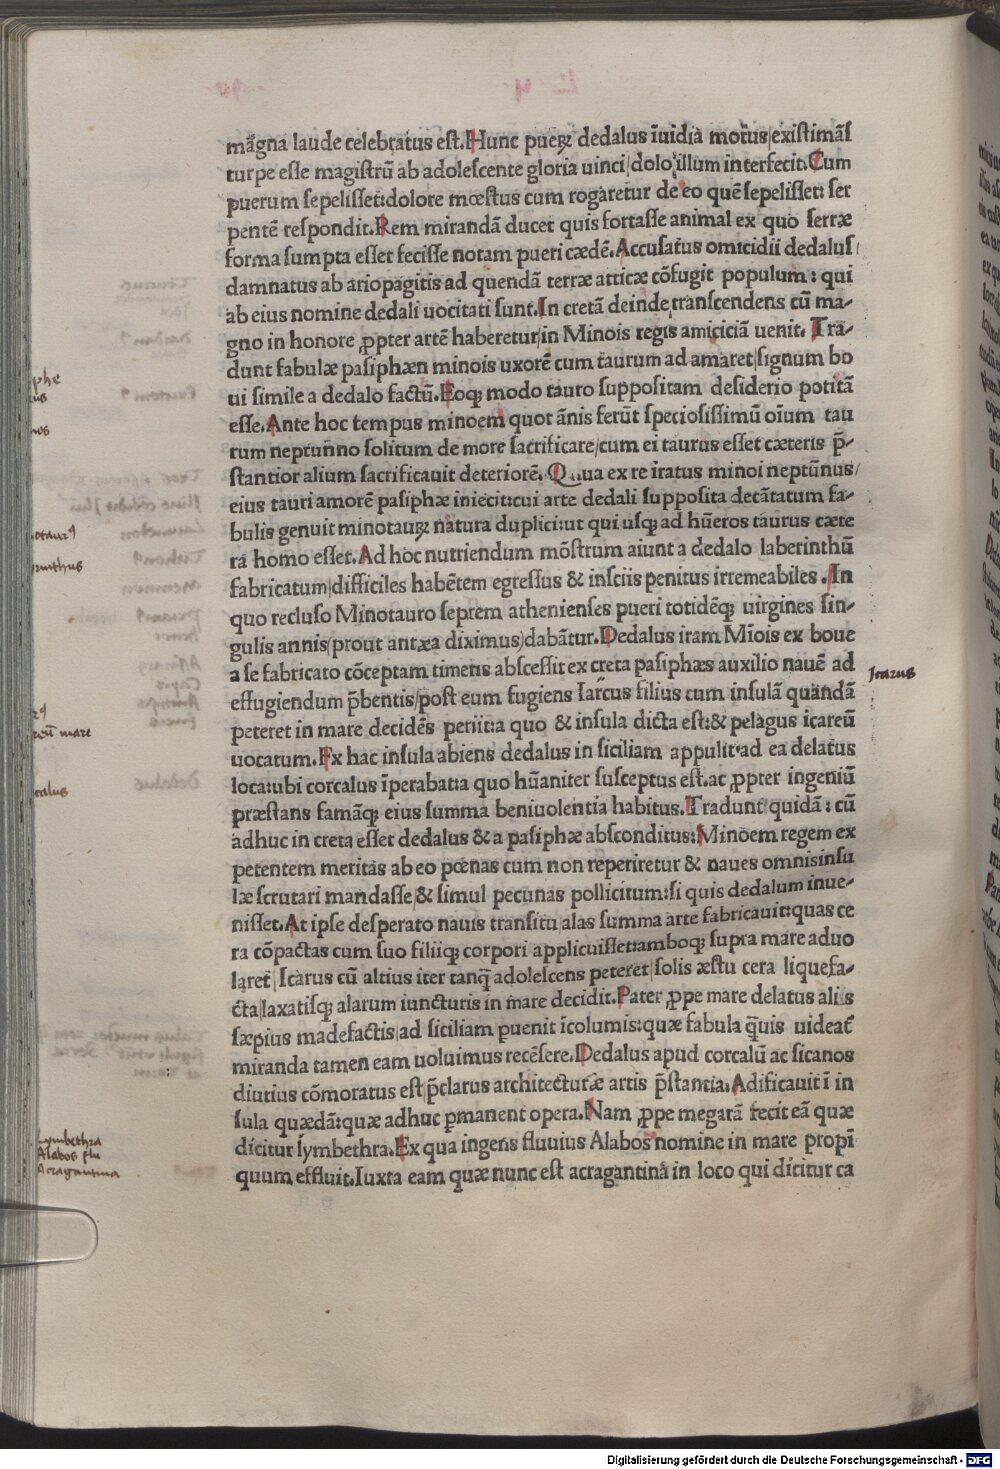 mãgna laude celebratus est. Hunc pueꝝ dedalus ĩuidia motus/existimãs
turpe esse magistrũ ab adolescente gloria uinci/dolo illum interfecit. Cum
puerum sepelisset:dolore mœstus cum rogaretur de eo quẽ sepelisset: ser
pentẽ respondit. Rem mirandã ducet quis fortasse animal ex quo serræ
forma sumpta esset fecisse notam pueri cædẽ. Accusatus omicidii dedalus/
damnatus ab ariopagitis ad quendã terræ atticæ cõfugit populum: qui
ab eius nomine dedali uocitati sunt. In cretã deinde transcendens cũ ma-
gno in honore ꝓpter artẽ haberetur/in Minois regis amiciciã uenit. Tra-
dunt fabulæ pasiphæn minois uxorẽ cum taurum ad amaret/signum bo
ui simile a dedalo factũ. Eoqꝫ modo tauro suppositam desiderio potitã
esse. Ante hoc tempus minoem quot ãnis ferũt speciosissimũ oĩum tau
rum neptunno solitum de more sacrificare/cum ei taurus esset cæteris p̃-
stantior alium sacrificauit deteriorẽ. Qua ex re iratus minoi neptũnus/
eius tauri amorẽ pasiphæ iniecit:cui arte dedali supposita decãtatum fa-
bulis genuit minotauꝝ natura duplici:ut qui usqꝫ ad hũeros taurus cæte
ra homo esset. Ad hoc nutriendum mõstrum aiunt a dedalo laberinthũ
fabricatum/difficiles habẽtem egressus & insciis penitus irremeabiles. In
quo recluso Minotauro septem athenienses pueri totidẽqꝫ uirgines sin-
gulis annis/prout antea diximus/dabãtur. Dedalus iram Mĩois ex boue
a se fabricato cõceptam timens abscessit ex creta pasiphæs auxilio nauẽ ad
effugiendum p̃bentis/post eum fugiens Iarcus filius cum insulã quandã
peteret in mare decidẽs periit:a quo & insula dicta est:& pelagus icareũ
uocatum. Ex hac insula abiens dedalus in siciliam appulit:ad ea delatus
loca:ubi corcalus ĩperabat:a quo hũaniter susceptus est.ac ꝓpter ingeniũ
præstans famãqꝫ eius summa beniuolentia habitus. Tradunt quidã: cũ
adhuc in creta esset dedalus & a pasiphæ absconditus: Minoem regem ex
petentem meritas ab eo pœnas cum non reperiretur & naues omnis insu
læ scrutari mandasse/& simul pecunas pollicitum:si quis dedalum inue-
nisset. At ipse desperato nauis transitu/alas summa arte fabricauit:quas ce
ra cõpactas cum suo filiiqꝫ corpori applicuisset:amboqꝫ supra mare aduo
laret/Icarus cũ altius iter tanq̃ adolescens peteret/solis æstu cera liquefa-
cta/laxatisqꝫ alarum iuncturis in mare decidit. Pater ꝓpe mare delatus aliis
sæpius madefactis/ad siciliam puenit ĩcolumis:quæ fabula q̃uis uideat̃
miranda tamen eam uoluimus recẽsere. Dedalus apud corcalũ ac sicanos
diutius cõmoratus est/p̃clarus architecturæ artis p̃stantia. Adificauit ĩ in
sula quædã:quæ adhuc ꝑmanent opera. Nam ꝓpe megarã fecit eã quæ
dicitur symbethra. Ex qua ingens fluuius Alabos nomine in mare propĩ
quum effluit. Iuxta eam quæ nunc est acragantinã in loco qui dicitur ca
Icarus
ymbethra
Alabos flu
Acragantina
Digitalisierung gefördert durch die Deutsche Forschungsgemeinschaft - DFG